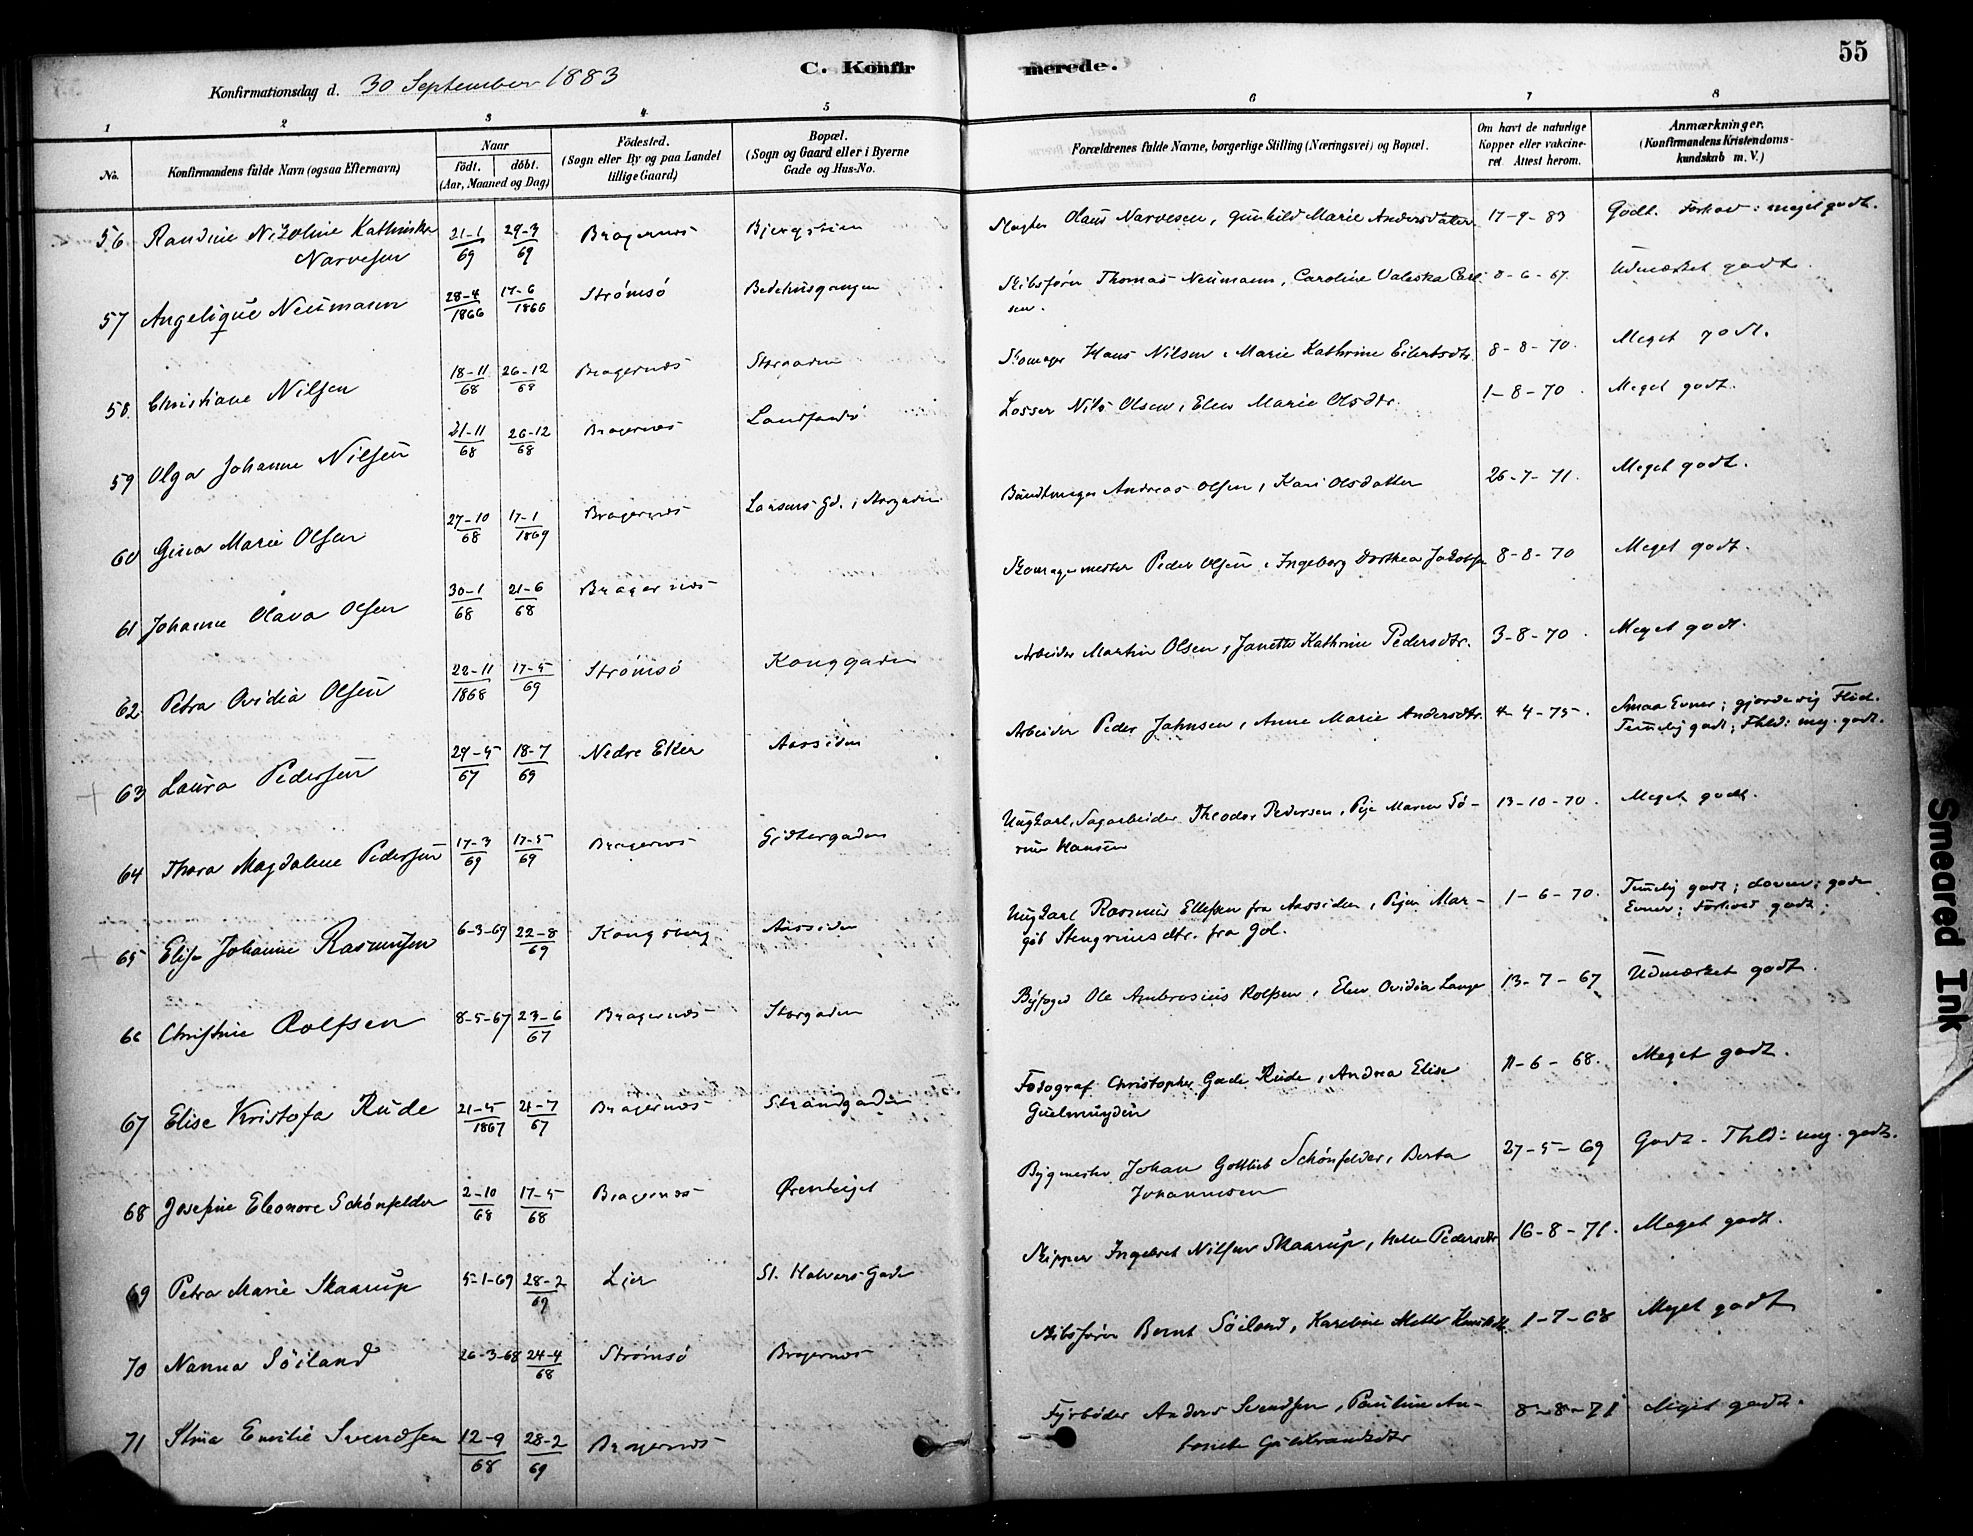 55
C. Konfirmerede.
Konfirmationsdag d. 30 September 1883
1 2 3 4 5 6 7 8
No.
Konfirmandens fulde Navn (ogsaa Efternavn)
Naar
födt. döbt.
(Aar, Maaned og Dag)
Födested.
(Sogn eller By og paa Landet
tillige Gaard)
Bopæl.
(Sogn og Gaard eller i Byerne
Gade og Hus-No.
Forældrenes fulde Navne, borgerlige Stilling (Næringsvei) og Bopæl.
Om havt de naturlige
Kopper eller vakcine-
ret Attest herom.
Anmærkninger.
(Konfirmandens Kristendoms-
kundskab m. V.)
56 Randine Nikoline Kathinka 21-1/69 29-3/69 Bragernæs Bjergstien Olaus Narvesen, Gunhild Marie Andersdatter 17-9-83 Godt. Forhold: meget godt.
Narvesen
57 Angelique Neumann 28-4/1866 17-6/1866 Strömsö Bedehusgangen Skibsförer Thomas Neumann, Caroline Valeska Carl- 8-6-67. Udmærket godt.
sen.
58. Christiane Nilsen 18-11/68 26-12/68 Bragernæs Storgaden Skomager Hans Nilsen, Marie Kathrine Eilertsdtr. 8-8-70. Meget godt.
59 Olga Johanne Nilsen 21-11/68 26-12/68 Bragernæs Landfaldö Losser Nils Olsen, Elen Marie Olsdtr. 1-8-70. Meget godt.
60 Gina Marie Olsen 27-10/68 17-1/1869 Bragernæs Larsens Gd., Storgaden Bundtmager Andreas Olsen, Kari Olsdatter 26-7-71. Meget godt.
61 Johanne Olava Olsen 30-1/68 21-6/68 Bragernæs Skomagermester Peder Olsen, Ingeborg Dorthea Jakobsen 8-8-70 Meget godt.
62 Petra Ovidia Olsen 22-11/1868 17-5/69 Strömsö Konggaden Arbeider Martin Olsen, Janette Kathrine Pedersdtr. 3-8-70. Meget godt.
+ 63 Laura Pedersen 24-5/67 18-7/69 Nedre Eker Aassiden Arbeider Peder Johnsen, Anne Marie Andersdtr. 4-4-75. Smaa Evner; gjorde sig Flid.
Temmelig godt; Fhld: meg. godt.
64 Thora Magdalene Pedersen 17-3/69 17-5/69 Bragernæs Gjetergaden Ungkarl, Sagarbeider Theodor Pedersen, Pige Maren Sö- 13-10-70. Meget godt.
rine Hansen
+ 65 Elise Johanne Rasmussen 6-3-69 22-8/69 Kongsberg Aassiden Ungkarl Rasmus Ellefsen fra Aassiden, Pigen Mar- 1-6-70. Temmelig godt; doven; gode
git Stengrimsdtr. fra Gol. Evner; Forhold godt.
66 Christine Rolfsen 8-5-67 23-6/67 Bragernæs Storgaden Byfoged Ole Ambrosius Rolfsen, Elen Ovidia Lange 13-7-67 Udmærket godt.
67 Elise Kristofa Rude 21-5/1867 21-7/67 Bragernæs Strandgaden Fotograf Christopher Gade Rude, Andrea Elise 11-6-68. Meget godt.
Guelmuyden
68 Josefine Eleonore Schönfelder 2-10/68 17-5/68 Bragernæs Örenteiget Bygmester Johan Gottlieb Schönfelder, Berta 27-5-69 Godt. Fhld: meg. godt.
Johannesen
69 Petra Marie Skaarup 5-1-69 28-2/69 Lier St. Halvars Gade Skipper Ingebret Nilsen Skaarup, Helle Pedersdtr 16-8-71. Meget godt.
70 Nanna Söiland 26-3-68 24-4/68 Strömsö Bragernæs Skibsförer Bernt Söiland, Kareline Mette 1-7-68 Meget godt
71 Emilie Svendsen 12-9/68 28-2/69 Bragernæs Fyrböder Anders Svendsen, Pauline An- 8-8-71 Meget godt.
tonette Gulbrandsdtr
Smeared Ink